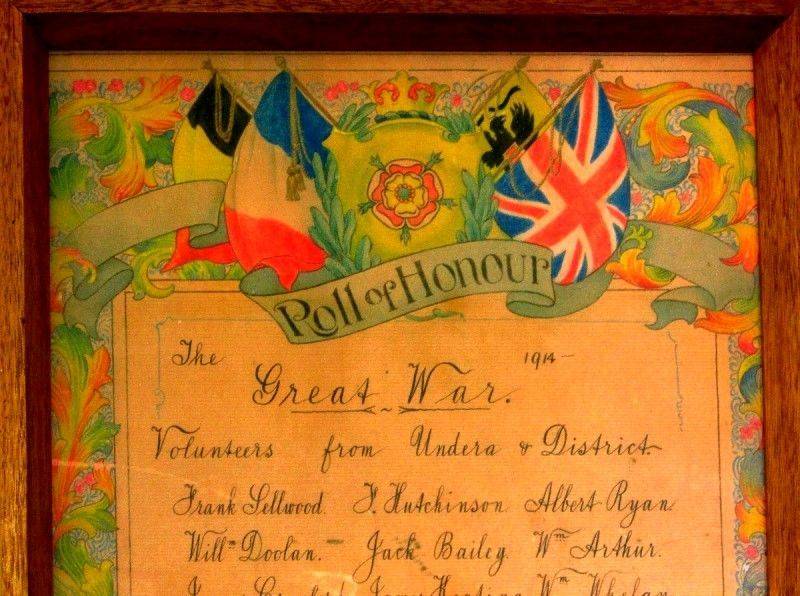 Roll of Honour
The 1914-
Great War.
Volunteers from Undera & District
Frank Sellwood. F. Hutchinson Albert Ryan
Willm Doolan. - Jack Bailey. Wm Arthur.
James Keating Wm Whelan